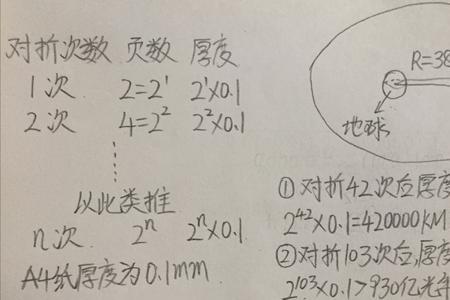 对折次数 页数 厚度
1次 2=2¹ 2¹×0.1
2次 4=2² 2²×0.1
以此类推
n次 2ⁿ 2ⁿ×0.1
A4纸厚度为0.1mm
R=38
地球
①对折42次后厚度
2⁴²×0.1=420000KM
②对折103次后,厚度
2¹⁰³×0.1>930亿光年